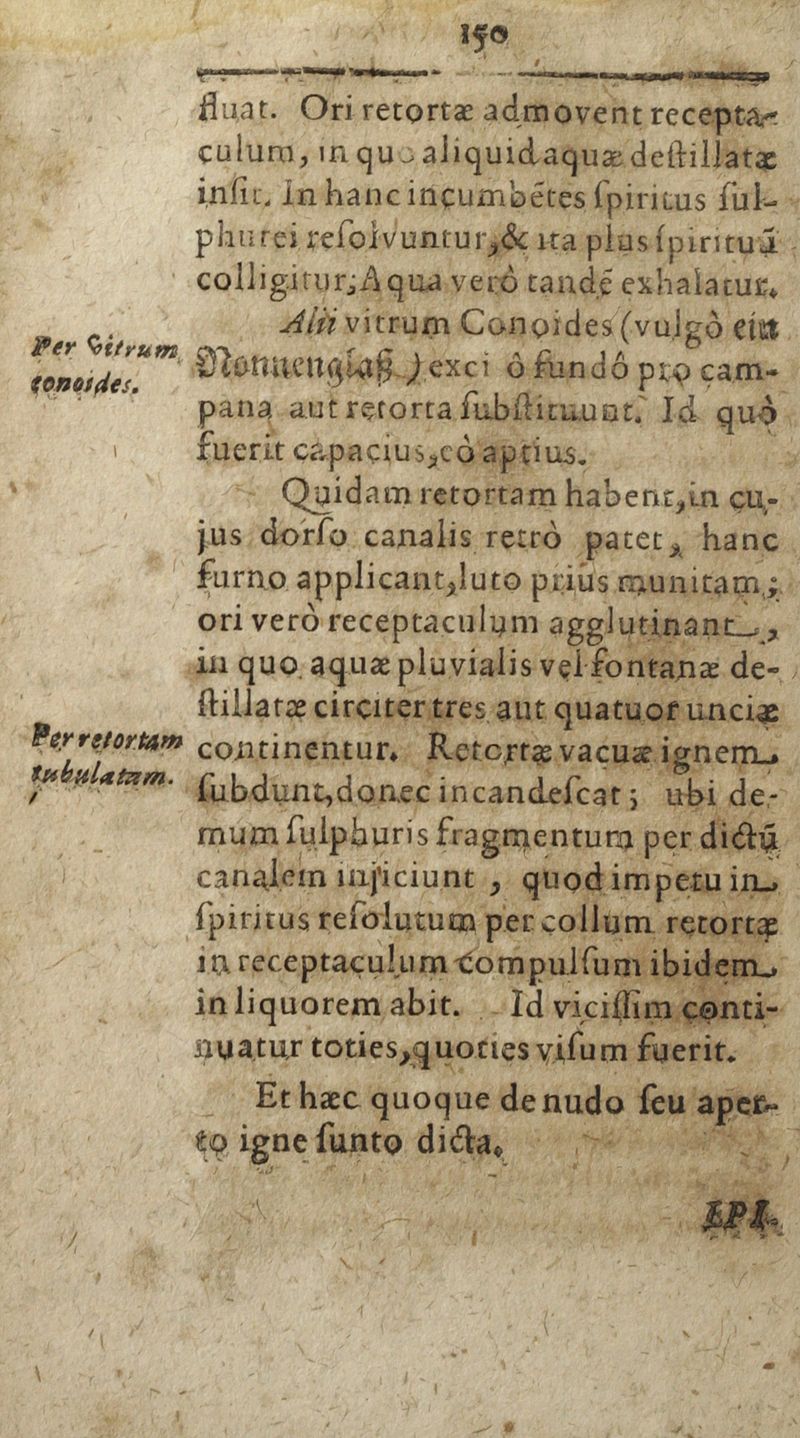 150
fluat. Ori retortæ admovent recepta-
culum, in quo aliquid aquæ deſtillatæ
inſit. In hanc incumbētes ſpiritus ſul-
phurei reſolvuntur, & ita plus ſpirituū
colligitur; Aqua verò tandē exhalatur.
Alii vitrum Conoides (vulgò ein
Per Vitrum
conoides.
Nonnenglaß) exci ſo fundo pro cam-
pana aut retorta ſubſtituunt. Id quò
fuerit capacius, eò aptius.
Quidam retortam habent, in cu-
jus dorſo canalis retrò patet, hanc
furno applicant, luto priùs munitam;
ori verò receptaculum agglutinant,
in quo aquæ pluvialis vel fontanæ de-
ſtillatæ circiter tres aut quatuor unciæ
Per retortam
tubulatam.
continentur. Retortæ vacuæ ignem
ſubdunt, donec incandeſcat; ubi de-
mum ſulphuris fragmentum per dictū
canalem injiciunt, quod impetu in
ſpiritus reſolutum per collum retortæ
in receptaculum compulſum ibidem
in liquorem abit. Id viciſſim conti-
nuatur toties, quoties viſum fuerit.
Et hæc quoque de nudo ſeu aper-
to igne ſunto dicta.